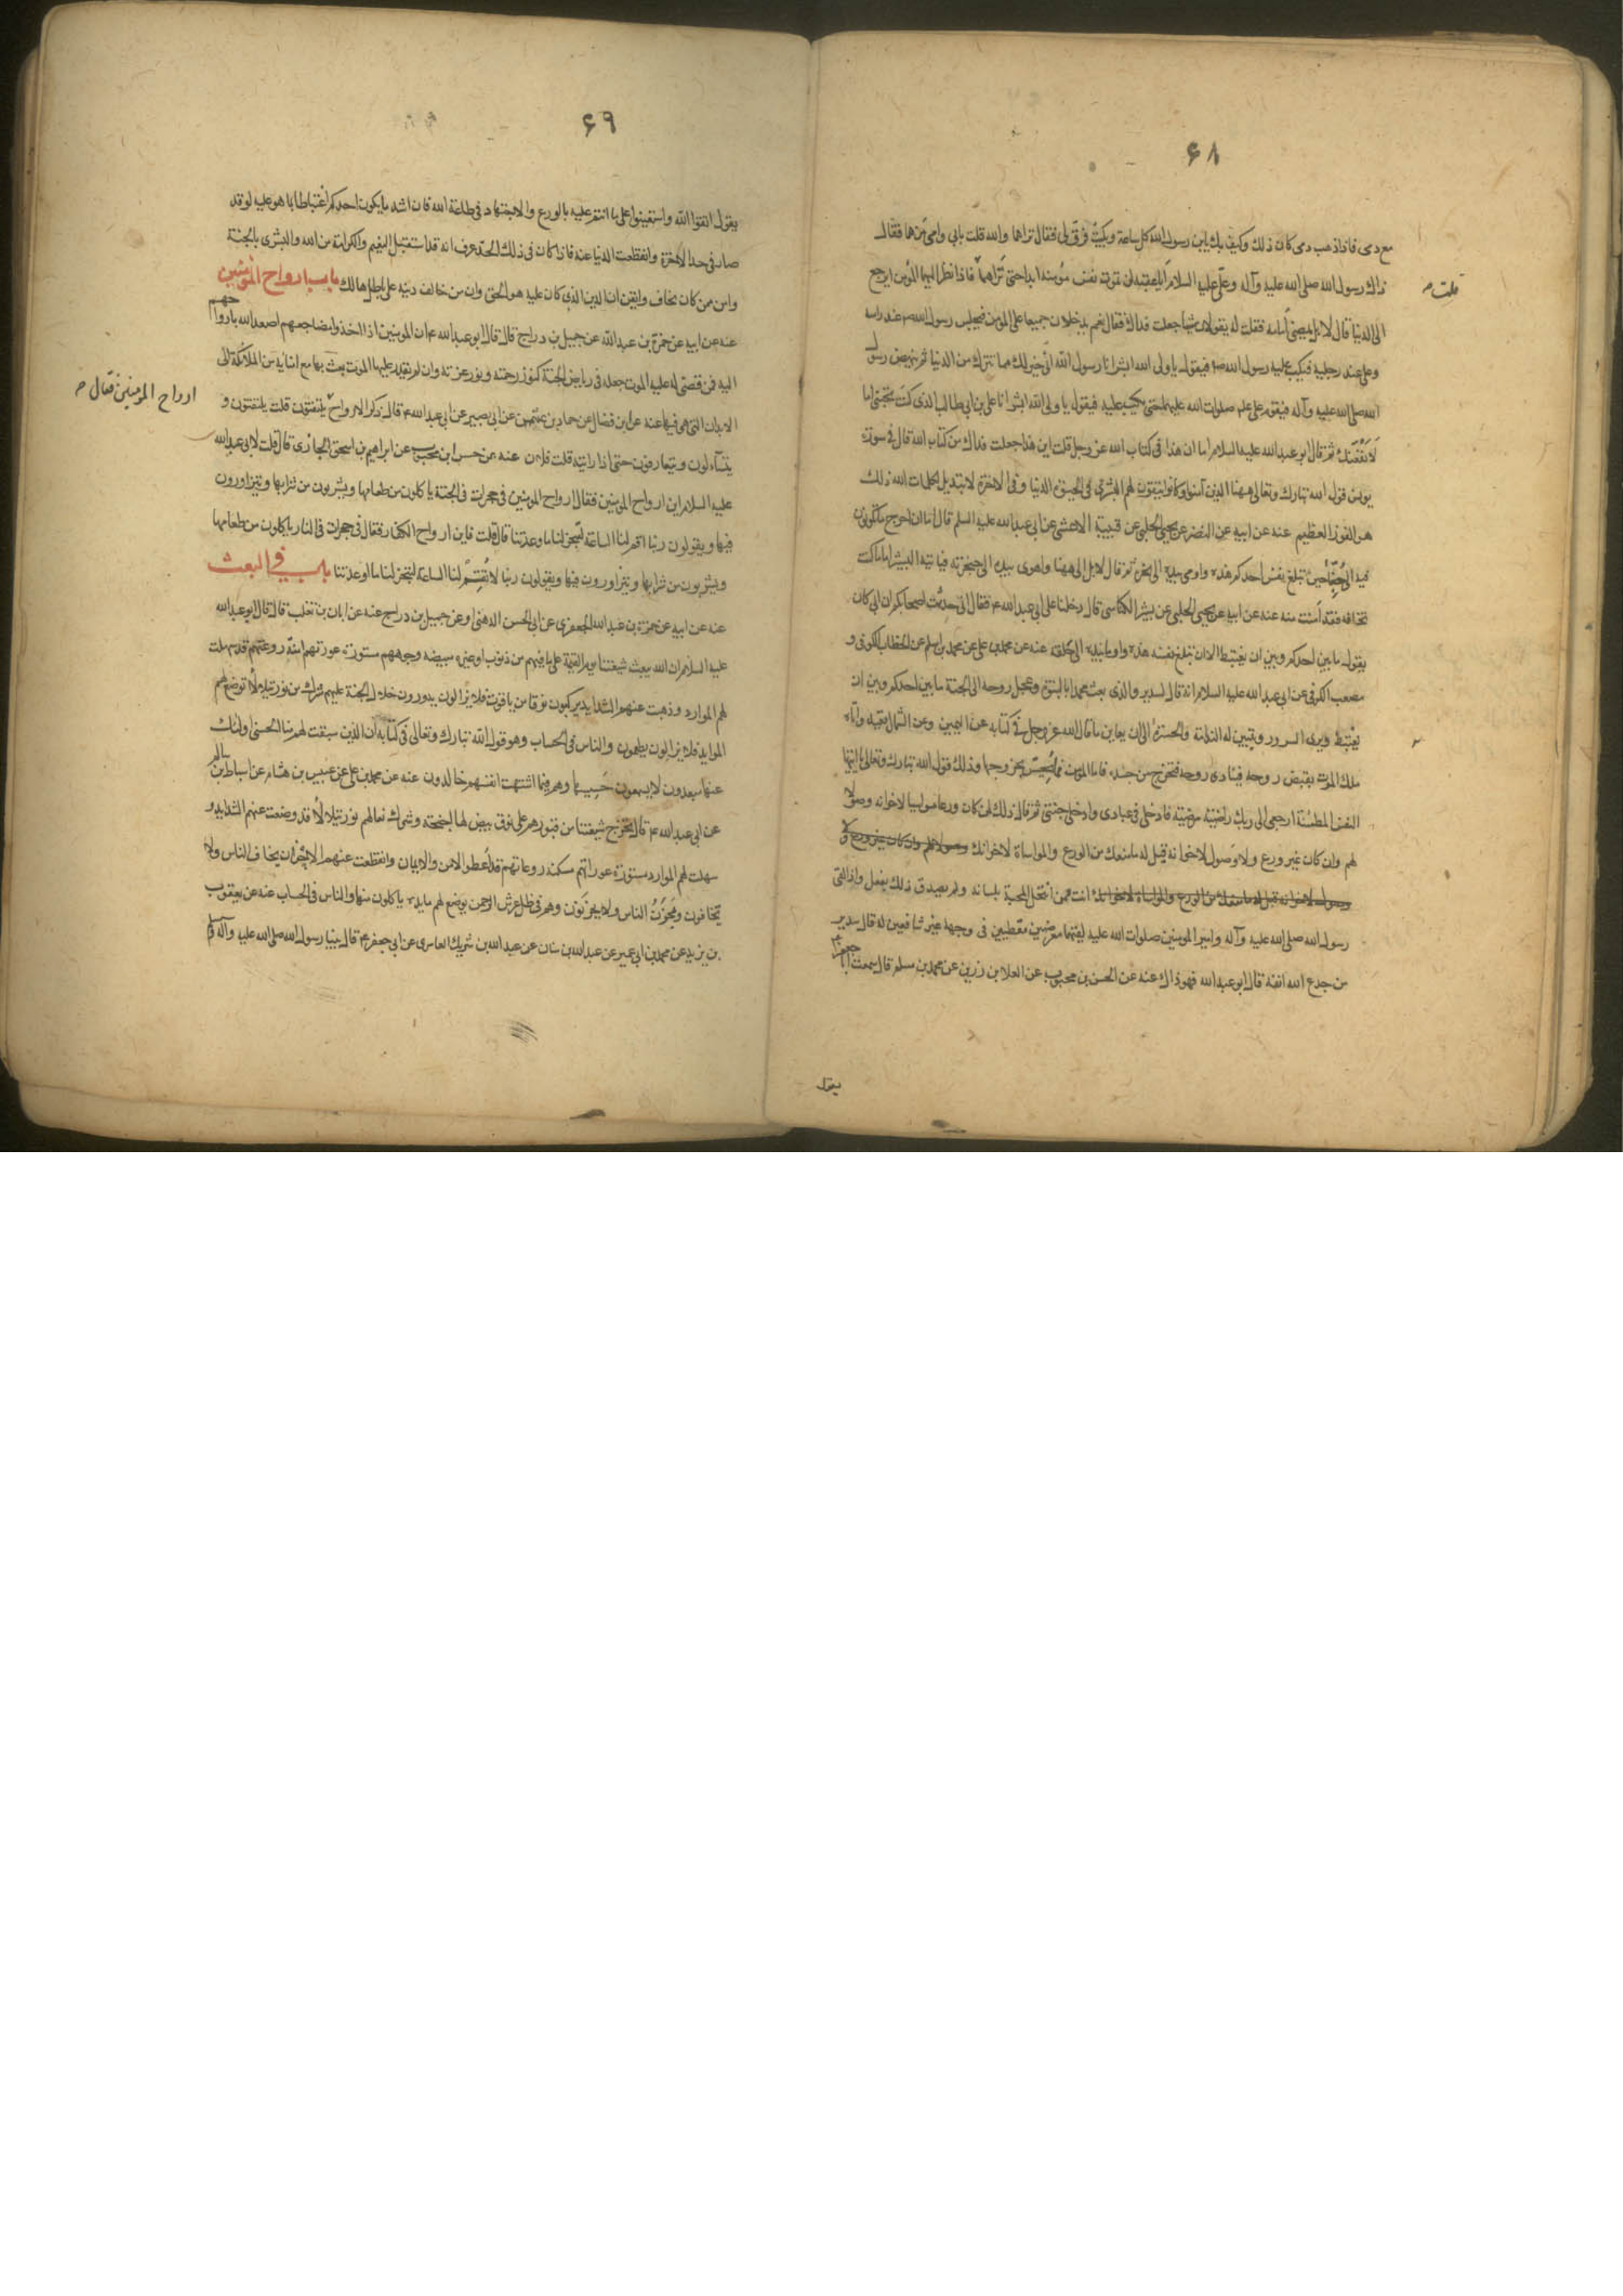 ۶۸
مع دمى فاذا ذهب دمى كان ذلك وكيف بك يابن رسول الله كل ساعة وبكيت فرق لى فقال تراهما والله قلت بابى وامى من هما فقال
ذلك رسول الله صلى الله عليه وآله وعلى عليه السلام يا عقبة لن تموت نفس مؤمنة ابدا حتى تراهما فاذا نظر اليهما المؤمن ايرجع
قلت
الى الدنيا قال لا بل يمضى أمامه فقلت له يقولان شيئا جعلت فداك فقال نعم يدخلان جميعا على المؤمن فيجلس رسول الله ص عند راسه
وعلى عند رجليه فيكب عليه رسول الله ص فيقول يا ولى الله ابشر انا رسول الله انى خير لك مما تترك من الدنيا ثم ينهض رسول
الله صلى الله عليه وآله فيقوم على على صلوات الله عليهما حتى يكب عليه فيقول يا ولى الله ابشر انا على بن ابى طالب الذى كنت تحبنى اما
لانفعنك ثم قال ابو عبد الله عليه السلام اما ان هذا فى كتاب الله عز وجل قلت اين هذا جعلت فداك من كتاب الله قال فى سورة
يونس قول الله تبارك وتعالى ههنا الذين آمنوا وكانوا يتقون لهم البشرى فى الحيوة الدنيا وفى الاخرة لا تبديل لكلمات الله ذلك
هو الفوز العظيم عنه عن ابيه عن النضر عن يحيى الحلبى عن قتيبة الاعشى عن ابى عبد الله عليه السلم قال اما ان احوج ما تكونون
فيه الى حبنا حين تبلغ نفس احدكم هذه واومى بيده الى نحره ثم قال لا بل الى ههنا واهوى بيده الى حنجرته فياتيه البشير اما ما كنت
تخافه فقد أمنت منه عنه عن ابيه عن يحيى الحلبى عن بشير الكناسى قال دخلنا على ابى عبد الله ع فقال اصحابكم ان ابى كان
يقول ما بين احدكم وبين ان يغتبط الا ان تبلغ نفسه هذه واوما بيده الى حلقه عنه عن محمد بن على عن محمد بن اسلم عن الخطاب الكوفى و
مصعب الكوفى عن ابى عبد الله عليه السلام انه قال لسدير والذى بعث محمدا بالنبوة وعجل روحه الى الجنة ما بين احدكم وبين ان
يغتبط ويرى السرور وتبين له الندامة والحسرة الا ان يعاين ما قال الله عز وجل فى كتابه عن اليمين وعن الشمال قعيد واتاه
ملك الموت بقبض روحه فينادى روحه فتخرج من جسده فاما المومن فما يحس بخروجها وذلك قول الله تبارك وتعالى يا ايتها
النفس المطمئنة ارجعى الى ربك راضية مرضية فادخلى فى عبادى وادخلى جنتى ثم قال ذلك لمن كان ورعا مواسيا لاخوانه وصولا
لهم وان كان غير ورع ولا وصول لاخوانه قيل له ما منعك من الورع والمواساة لاخوانك
انت ممن انتحل المحبة بلسانه ولم يصدق ذلك بفعل واذا لقى
رسول الله صلى الله عليه وآله وامير المومنين صلوات الله عليه لقيهما معرضين مقطبين فى وجهه غير شافعين له قال سدير
من جدع الله انفه قال ابو عبد الله فهو ذاك عنه عن الحسن بن محبوب عن العلا بن رزين عن محمد بن مسلم قال سمعت ابا جعفر ع
يقول
۶۹
يقول اتقوا الله واستعينوا على ما انتم عليه بالورع والاجتهاد فى طاعة الله فان اشد ما يكون احدكم اغتباطا بما هو عليه لو قد
صار فى حد الاخرة وانقطعت الدنيا عنه فاذا كان فى ذلك الحد عرف انه قد استقبل النعيم والكرامة من الله والبشرى بالجنة
وامن ممن كان يخاف وايقن ان الدين الذى كان عليه هو الحق وان من خالف دينه على باطل هالك باب ارواح المؤمنين
عنه عن ابيه عن حمزة بن عبد الله عن جميل بن دراج قال قال ابو عبد الله ع ان المومنين اذا اخذوا مضاجعهم اصعد الله بارواحهم
اليه فمن قضى له عليه الموت جعله فى رياض الجنة كنوز رحمته ونور عزته وان لم يقدر عليها الموت بعث بها مع امنائه من الملائكة الى
الابدان التى هى فيها عنه عن ابن فضال عن حماد بن عثمن عن ابى بصير عن ابى عبد الله ع قال ذكر الارواح يلتقون قلت يلتقون و
ارواح المومنين فقال
يتسآءلون ويتعارفون حتى اذا رايته قلت فلان عنه عن حسن ابن محبوب عن ابراهيم بن اسحق الجازى قال قلت لابى عبد الله
عليه السلام اين ارواح المومنين فقال ارواح المومنين فى حجرات فى الجنة ياكلون من طعامها ويشربون من شرابها ويتزاورون
فيها ويقولون ربنا اقم لنا الساعة لتنجز لنا ما وعدتنا قال قلت فاين ارواح الكفار فقال فى حجرات فى النار ياكلون من طعامها
ويشربون من شرابها ويتزاورون فيها ويقولون ربنا لا تقم لنا الساعة لتنجز لنا ما اوعدتنا باب فى البعث
عنه عن ابيه عن حمزة بن عبد الله الجعفرى عن ابى الحسن الدهنى وعن جميل بن دراج عنه عن ابان بن تغلب قال قال ابو عبد الله
عليه السلام ان الله يبعث شيعتنا يوم القيمة على ما فيهم من ذنوب او غيره مبيضه وجوههم مستورة عورتهم امنه روعتهم قد سهلت
لهم الموارد وذهبت عنهم الشدايد يركبون نوقا من ياقوت فلا يزالون يدورون خلال الجنة عليهم شراك من نور يتلالأ توضع لهم
الموايد فلا يزالون يطعمون والناس فى الحساب وهو قول الله تبارك وتعالى فى كتابه ان الذين سبقت لهم منا الحسنى اولئك
عنها مبعدون لا يسمعون حسيسها وهم فيما اشتهت انفسهم خالدون عنه عن محمد بن على عن عبيس بن هشام عن اسباط بن سالم
عن ابى عبد الله ع قال يخرج شيعتنا من قبورهم على نوق بيض لها اجنحة وشرك نعالهم نور يتلالأ قد وضعت عنهم الشدايد و
سهلت لهم الموارد مستورة عوراتهم مسكنة روعاتهم قد أعطوا الامن والايمان وانقطعت عنهم الاحزان يخاف الناس ولا
يخافون ويحزن الناس ولا يحزنون وهم فى ظل عرش الرحمن يوضع لهم مايدة ياكلون منها والناس فى الحساب عنه عن يعقوب
بن يزيد عن محمد بن ابى عمير عن عبد الله بن سنان عن عبد الله بن شريك العامرى عن ابى جعفر ع قال بينا رسول الله صلى الله عليه وآله